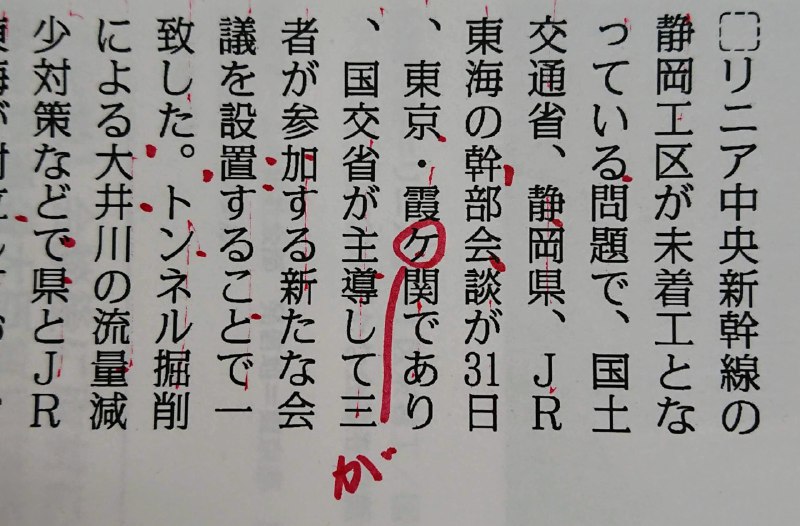 リニア中央新幹線の
静岡工区が未着工とな
っている問題で、国土
交通省、静岡県、ＪＲ
東海の幹部会談が31日
、東京・霞ケ関であり
、国交省が主導して三
者が参加する新たな会
議を設置することで一
致した。トンネル掘削
による大井川の流量減
少対策などで県とＪＲ
が